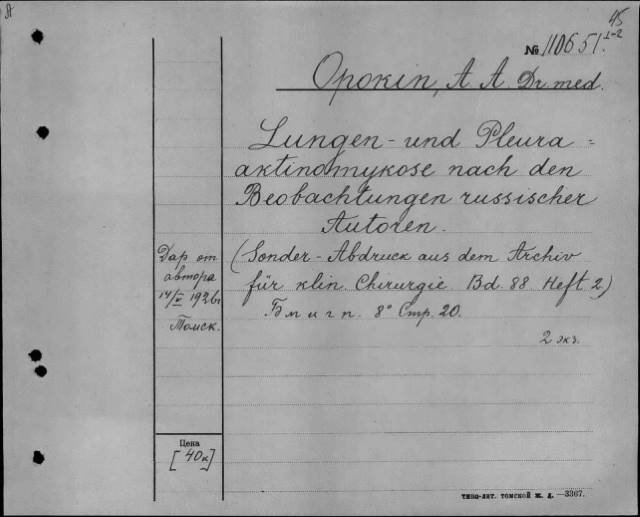 А
45
№ 110651. 1-2
Opokin, A A Dr. med.
Lungen - und Pleura =
aktinomykose nach den
Beobachtungen russischer
Autoren.
Дар от
автора
14/V 1926 г
Томск.
(Sonder - Abdruck aus dem Archiv
für klin. Chirurgie Bd. 88 Heft 2)
Б м и г п. 8° Стр. 20.
2 экз.
Цена
[40к]
ТИПО-ЛИТ. ТОМСКОЙ Ж. Д. —3367.